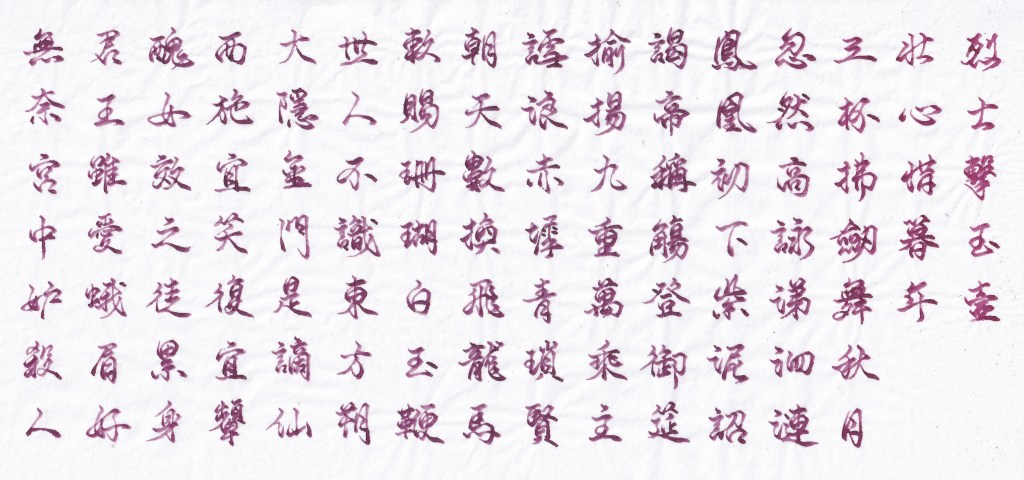 烈士擊玉壺
壯心惜暮年
三杯拂劍舞秋月
忽然高詠涕泗漣
鳳凰初下紫泥詔
謁帝稱觴登御筵
揄揚九重萬乘主
謔浪赤墀青瑣賢
朝天數換飛龍馬
敕賜珊瑚白玉鞭
世人不識東方朔
大隱金門是謫仙
西施宜笑復宜顰
醜女效之徒累身
君王雖愛蛾眉好
無奈宮中妒殺人